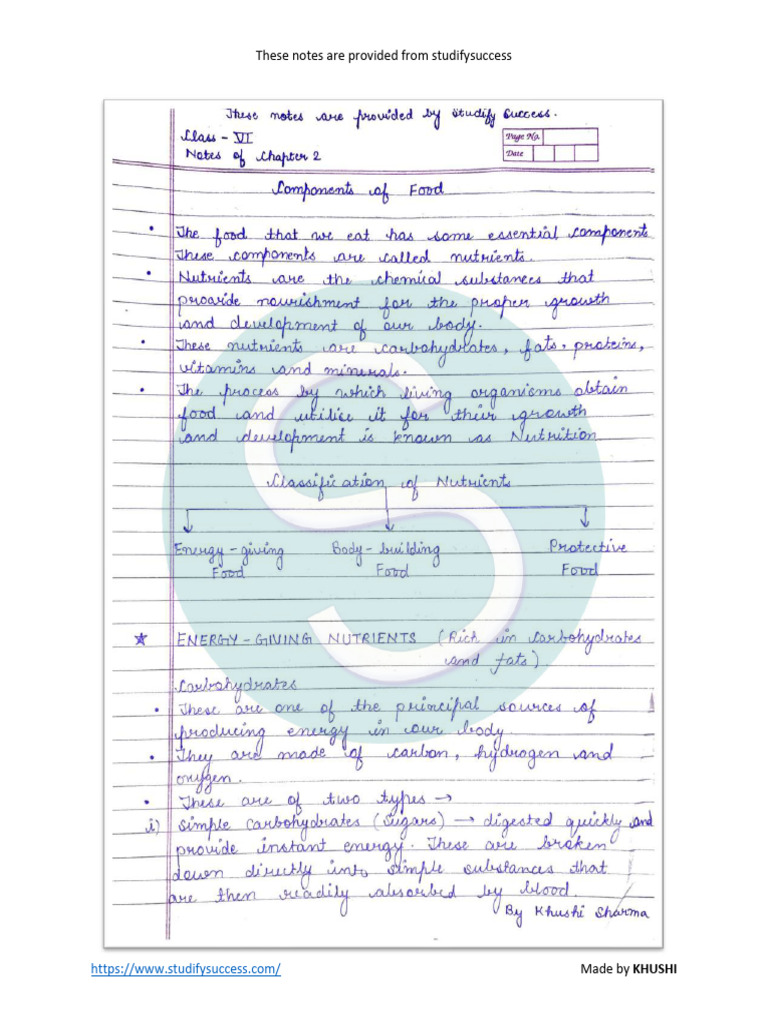 These notes are provided from studifysuccess
These notes are provided by Studify Success.
Class - VI
Page No.
Notes of Chapter 2
Date
Components of Food
• The food that we eat has some essential components
These components are called nutrients.
• Nutrients are the chemial substances that
proavide nourishment for the proper growth
and development of our body.
• These nutrients are carbohydrates, fats, proteins,
vitamins and minerals.
• The process by which living organisms obtain
food and utilise it for their growth
and development is known as Nutrition
Classification of Nutrients
Energy-giving Body-building Protective
Food Food Food
☆ ENERGY-GIVING NUTRIENTS (Rich in Carbohydrates
and fats)
Carbohydrates
• These are one of the principal sources of
producing energy in our body.
• They are made of carbon, hydrogen and
oxygen.
• These are of two types →
i) Simple Carbohydrates (Sugars) → digested quickly and
provide instant energy. These are broken
down directly into simple substances that
are then readily absorbed by blood.
By Khushi Sharma
https://www.studifysuccess.com/ Made by KHUSHI